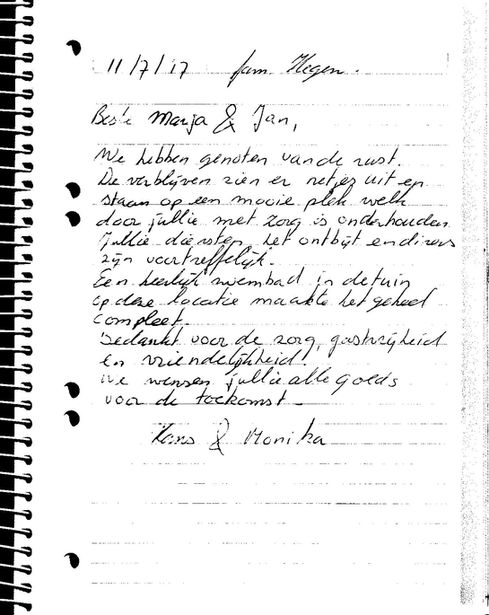 11/7/17 fam. Hegen.
Beste Marja & Jan,
We hebben genoten van de rust.
De verblijven zien er netjes uit en
staan op een mooie plek welk
door jullie met zorg is onderhouden
Jullie diensten, het ontbijt en diners
zijn voortreffelijk.
Een heerlijk zwembad in de tuin
op deze locatie maakte het geheel
compleet.
Bedankt voor de zorg, gastvrijheid
en vriendelijkheid.
We wensen jullie alle goeds
voor de toekomst -
Hans & Monika